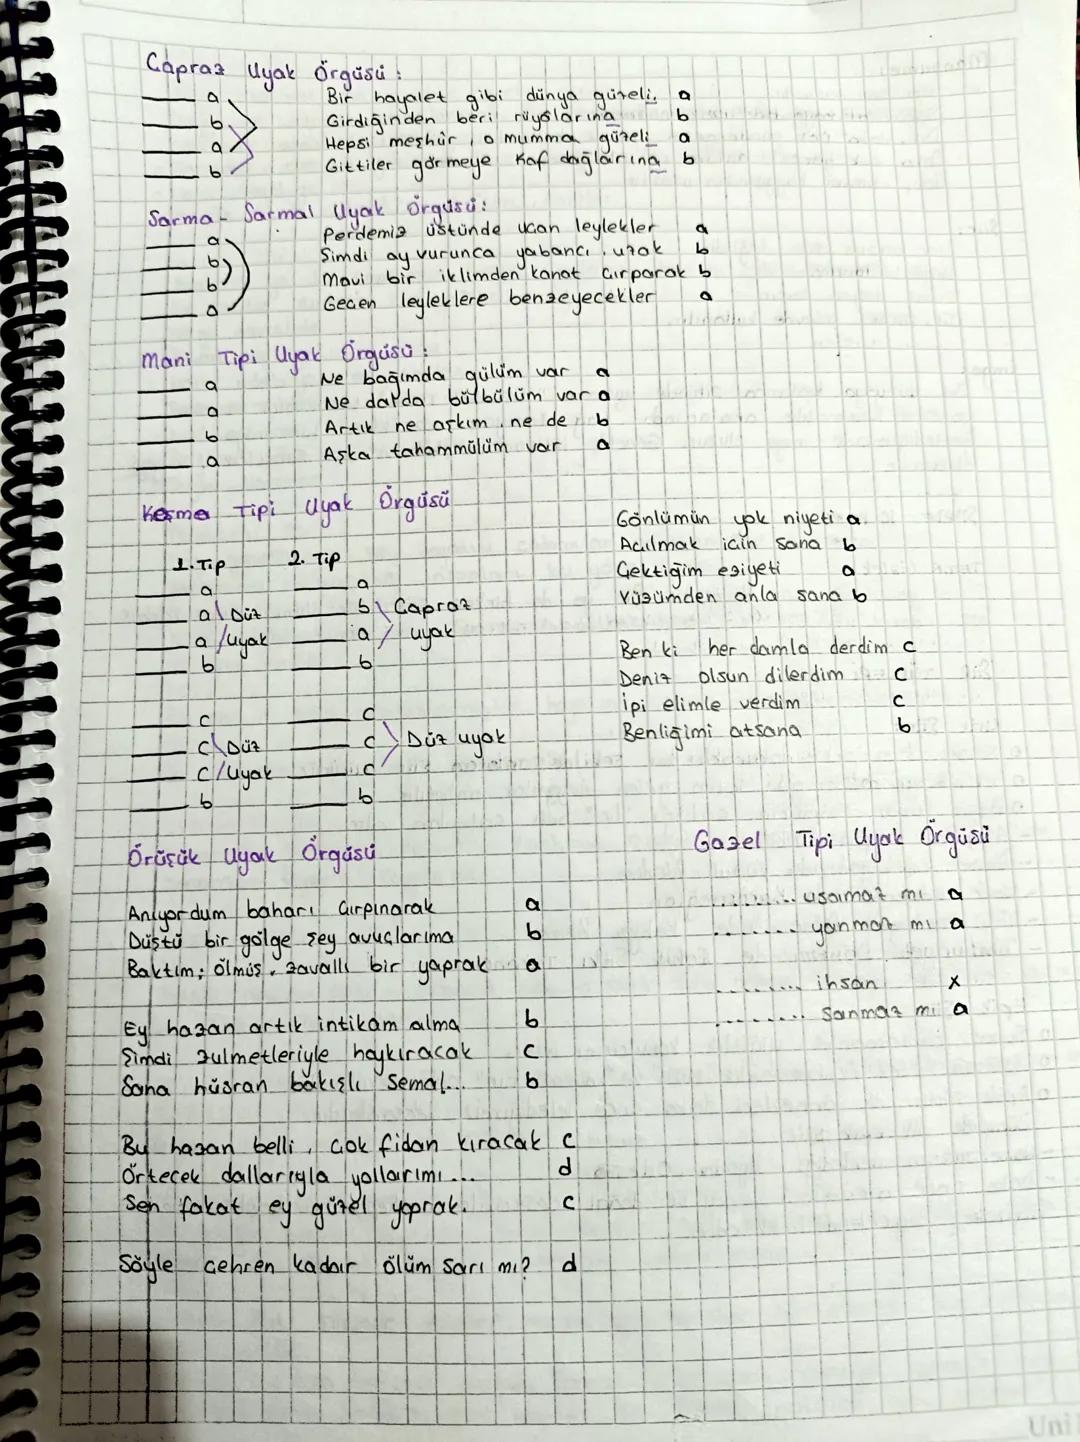 Çapraz Uyak Örgüsü :
a Bir hayalet gibi dünya güzeli, a
b Girdiğinden beri rüyalarına b
a Hepsi meşhûr, o mumma güzeli a
b Gittiler görmeye Kaf dağlarına b
Sarma - Sarmal Uyak Örgüsü:
a Perdemiz üstünde uçan leylekler a
b Şimdi ay vurunca yabancı, uzak b
b Mavi bir iklimden kanat çırparak b
a Geçen leyleklere benzeyecekler a
Mani Tipi Uyak Örgüsü :
a Ne bağımda gülüm var a
a Ne dalda bülbülüm var a
b Artık ne aşkım ne de b
a Aşka tahammülüm var a
Koşma Tipi Uyak Örgüsü
1. Tip 2. Tip
a a
a Düz b Çapraz
a uyak a uyak
b b
c c
c Düz c Düz uyak
c uyak c
b b
Gönlümün yok niyeti a
Açılmak için sana b
Çektiğim eziyeti a
Yüzümden anla sana b
Ben ki her damla derdim c
Deniz olsun dilerdim c
İpi elimle verdim c
Benliğimi atsana b
Örüşük Uyak Örgüsü
Anıyordum baharı çırpınarak a
Düştü bir gölge şey avuçlarıma b
Baktım; ölmüş, zavallı bir yaprak a
Ey hazan artık intikam alma b
Şimdi zulmetleriyle haykıracak c
Sana hüsran bakışlı semal... b
Bu hazan belli, çok fidan kıracak c
Örtecek dallarıyla yollarımı... d
Sen fakat ey güzel yaprak. c
Söyle çehren kadar ölüm sarı mı? d
Gazel Tipi Uyak Örgüsü
.......... usanmaz mı a
........ yanmaz mı a
......... ihsan x
........ sanmaz mı a
Uni